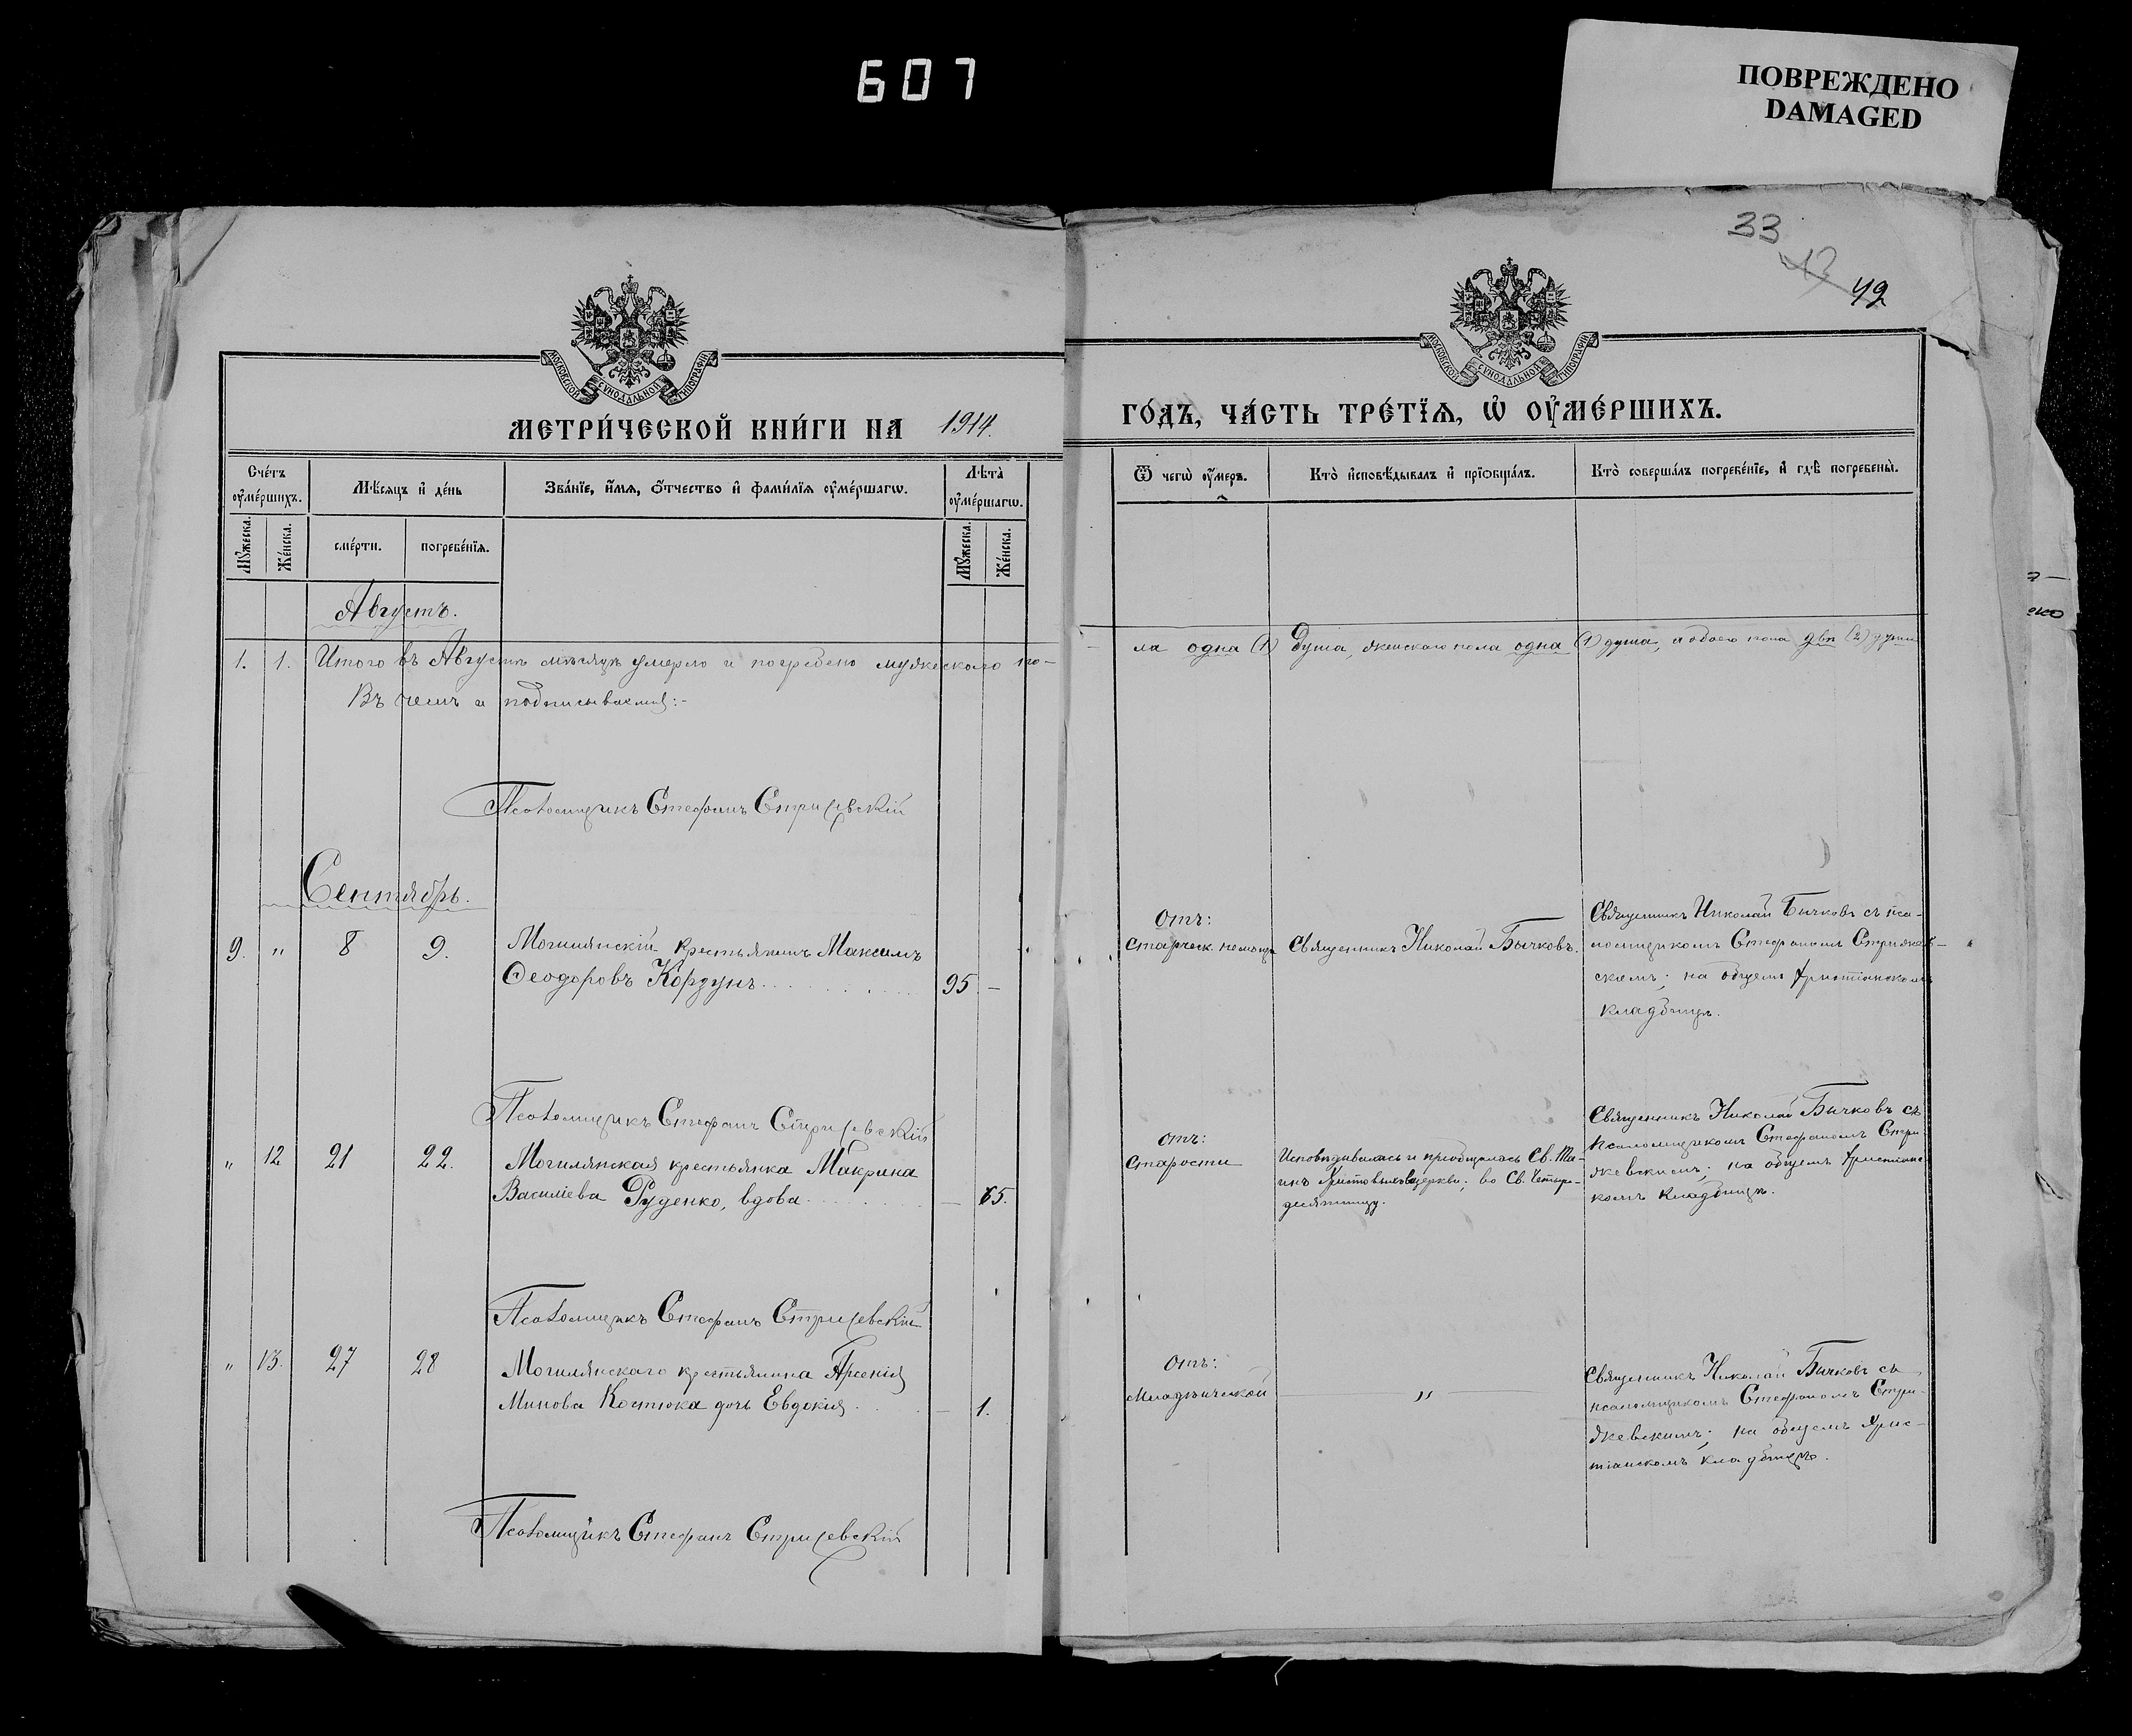 607
ПОВРЕЖДЕНО
DAMAGED
33
42
МОСКОВСКОЙ СѴНОДАЛЬНОЙ ТИПОГРАФІИ
МОСКОВСКОЙ СѴНОДАЛЬНОЙ ТИПОГРАФІИ
МЕТРИ́ЧЕСКОЙ КНИ́ГИ НА 1914.
ГО́ДЪ, ЧА́СТЬ ТРЕ́ТЇѦ, Ѡ҆ ОУ҆МЕ́РШИХЪ.
Сче́тъ оу҆ме́ршихъ.
Мѣ́сѧцъ и҆ де́нь
Зва́нїе, и҆́мѧ, ѻ҆́тчество и҆ фами́лїѧ оу҆ме́ршагѡ.
Лѣта̀ оу҆ме́ршагѡ.
Ѿ чегѡ̀ оу҆́меръ.
Кто̀ и҆сповѣ́дывалъ и҆ прїѡбща́лъ.
Кто̀ соверша́лъ погребе́нїе, и҆ гдѣ̀ погребены̀.
Мꙋ́жеска.
Же́нска.
сме́рти.
погребе́нїѧ.
Мꙋ́жеска.
Же́нска.
Августъ.
1. 1. Итого въ Августѣ мѣсяцѣ умерло и погребено мужескаго по-
ла одна (1) душа, женскаго пола одна (1) душа, а обоего пола двѣ (2) души
Въ чемъ и подписываемся:-
Псаломщикъ Стефанъ Стрижевскій
Сентябрь.
9. " 8 9. Могилянскій крестьянинъ Максимъ
Ѳеодоровъ Кордунъ 95 -
Отъ:
старческ. немощи
Священникъ Николай Бычковъ.
Священникъ Николай Бычковъ съ пса-
ломщикомъ Стефаномъ Стрижев-
скимъ; на общемъ христіанскомъ
кладбищѣ.
Псаломщикъ Стефанъ Стрижевскій
" 12 21 22. Могилянская крестьянка Макрина
Василіева Руденко, вдова - 65.
отъ:
старости
Исповѣдывалась и приобщалась Св. Та-
инъ Христовыхъ въ церкви; во Св. Четыре-
десятницу.
Священникъ Николай Бычковъ съ
псаломщикомъ Стефаномъ Стри-
жевскимъ; на общемъ христіанс-
комъ кладбищѣ.
Псаломщикъ Стефанъ Стрижевскій
" 13. 27 28 Могилянскаго крестьянина Арсенія
Минова Костюка дочь Евдокія - 1.
Отъ:
младенческой
"
Священникъ Николай Бычковъ съ
псаломщикомъ Стефаномъ Стри-
жевскимъ; на общемъ хрис-
тіанскомъ кладбищѣ.
Псаломщикъ Стефанъ Стрижевскій